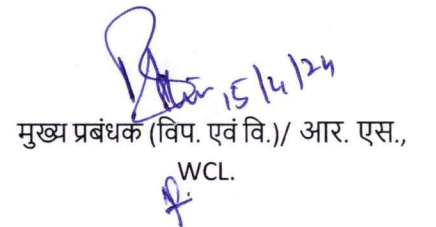 15/4/24
मुख्य प्रबंधक (विप. एवं वि.)/ आर. एस.,
WCL.